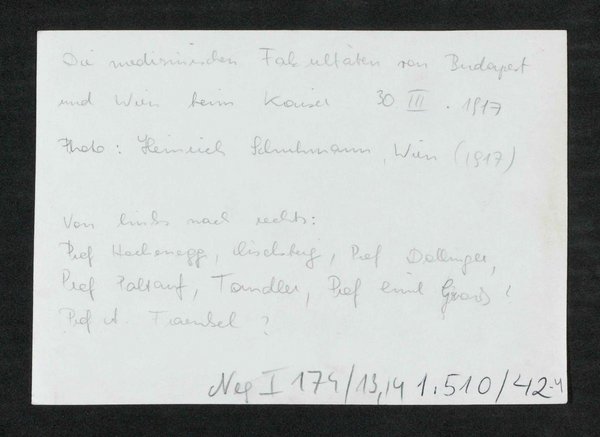 Die medizinischen Fakultäten von Budapest
und Wien beim Kaiser 30 III. 1917
Photo: Heinrich Schuhmann, Wien (1917)
Von links nach rechts:
Prof Hochenegg, Eiselsberg, Prof Dollinger,
Prof Paltauf, Tandler, Prof Emil Grosz?
Prof A. Fraenkel?
Neg I 174/13,14 1.510/42-4